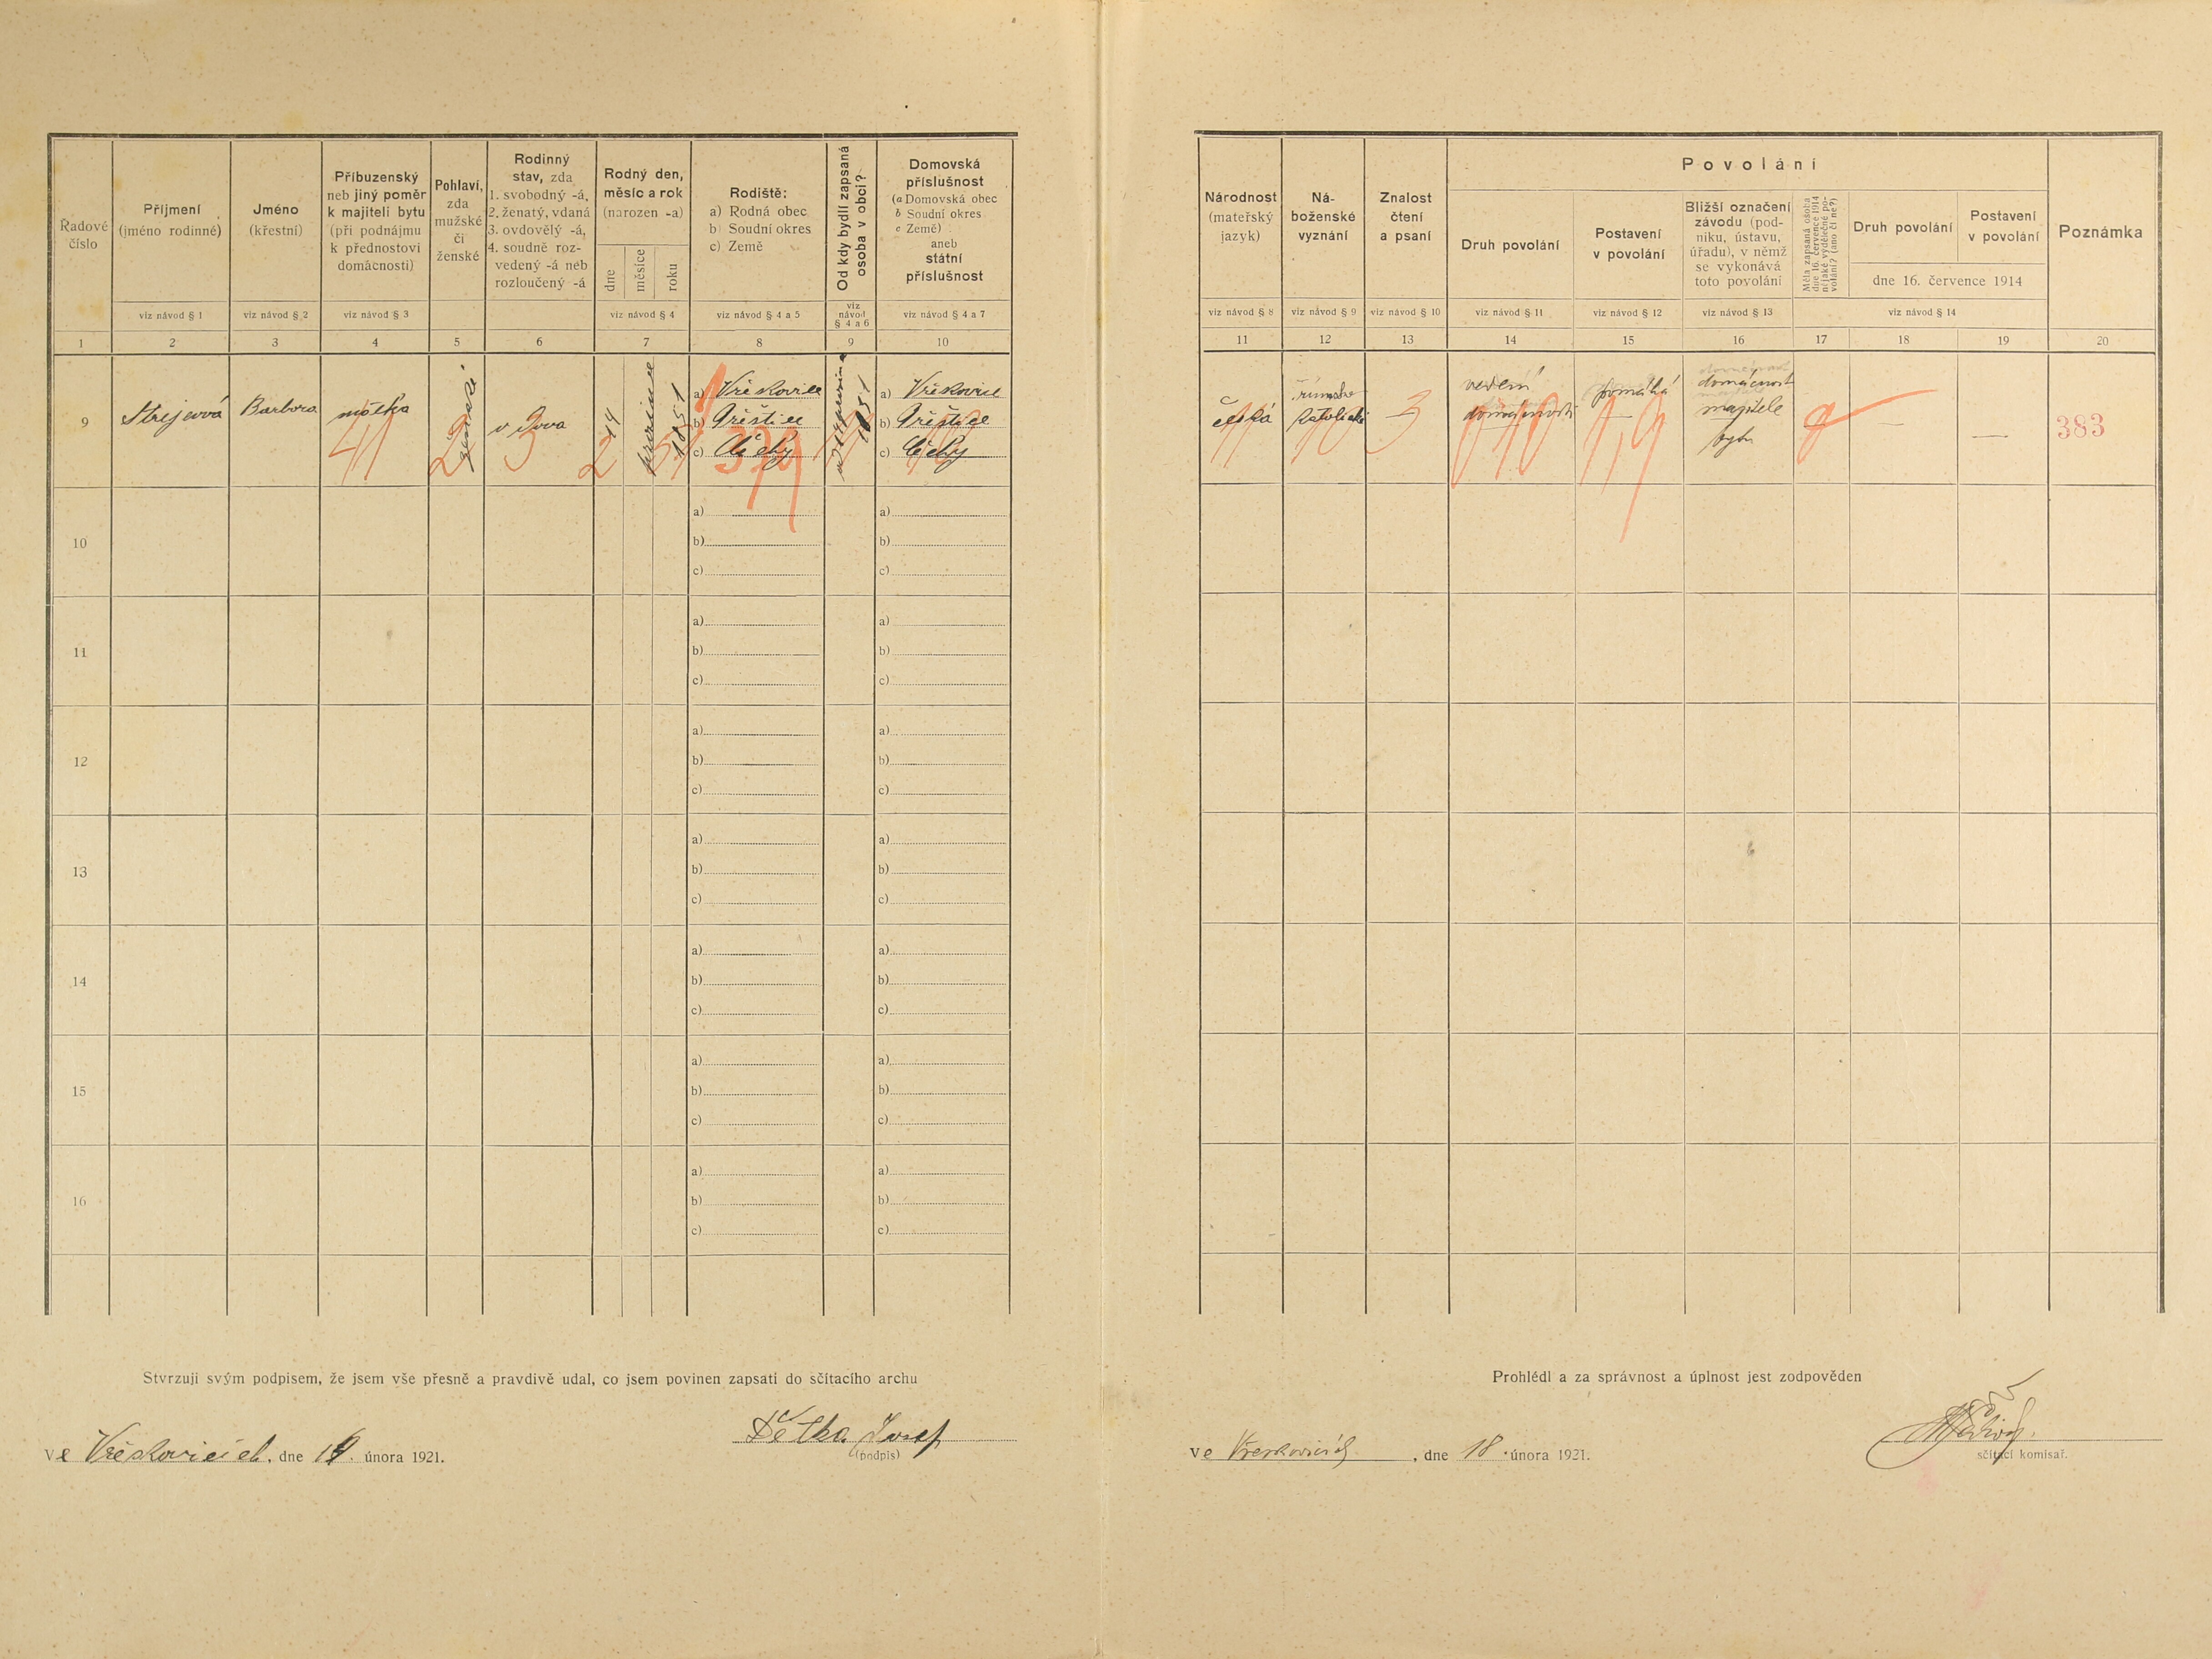 Řadové číslo
Příjmení
(jméno rodinné)
viz návod § 1
Jméno
(křestní)
viz návod § 2
Příbuzenský
neb jiný poměr
k majiteli bytu
(při podnájmu
k přednostovi
domácnosti)
viz návod § 3
Pohlaví,
zda
mužské
či
ženské
Rodinný
stav, zda
1. svobodný -á,
2. ženatý, vdaná
3. ovdovělý -á,
4. soudně roz-
vedený -á neb
rozloučený -á
Rodný den,
měsíc a rok
(narozen -a)
dne
měsíce
roku
viz návod § 4
Rodiště:
a) Rodná obec
b) Soudní okres
c) Země
viz návod § 4 a 5
Od kdy bydlí zapsaná
osoba v obci?
viz
návod
§ 4 a 6
Domovská
příslušnost
(a Domovská obec
b Soudní okres
c Země)
aneb
státní
příslušnost
viz návod § 4 a 7
Národnost
(mateřský
jazyk)
viz návod § 8
Ná-
boženské
vyznání
viz návod § 9
Znalost
čtení
a psaní
viz návod § 10
Povolání
Druh povolání
viz návod § 11
Postavení
v povolání
viz návod § 12
Bližší označení
závodu (pod-
niku, ústavu,
úřadu), v němž
se vykonává
toto povolání
viz návod § 13
Měla zapsaná osoba
dne 16. července 1914
nějaké výdělečné po-
volání? (ano či ne?)
Druh povolání
Postavení
v povolání
dne 16. července 1914
viz návod § 14
Poznámka
1 2 3 4 5 6 7 8 9 10
11 12 13 14 15 16 17 18 19 20
9 Strejcová Barbora matka ženské vdova 14 1851
a) Vřeskovice
b) Přeštice
c) Čechy
1851
a) Vřeskovice
b) Přeštice
c) Čechy
česká
římsko
katolické
vedení
domácnosti
pomáhá
domácnost
majitele
bytu
— —
383
41 2 3 2 51 379
11 10 3 1,9
10
a) a)
b) b)
c) c)
11
a) a)
b) b)
c) c)
12
a) a)
b) b)
c) c)
13
a) a)
b) b)
c) c)
14
a) a)
b) b)
c) c)
15
a) a)
b) b)
c) c)
16
a) a)
b) b)
c) c)
Stvrzuji svým podpisem, že jsem vše přesně a pravdivě udal, co jsem povinen zapsati do sčítacího archu
Ve Vřeskovicích, dne . února 1921.
Dětka Josef
(podpis)
Prohlédl a za správnost a úplnost jest zodpověden
Ve Vřeskovicích, dne 18. února 1921.
sčítací komisař.